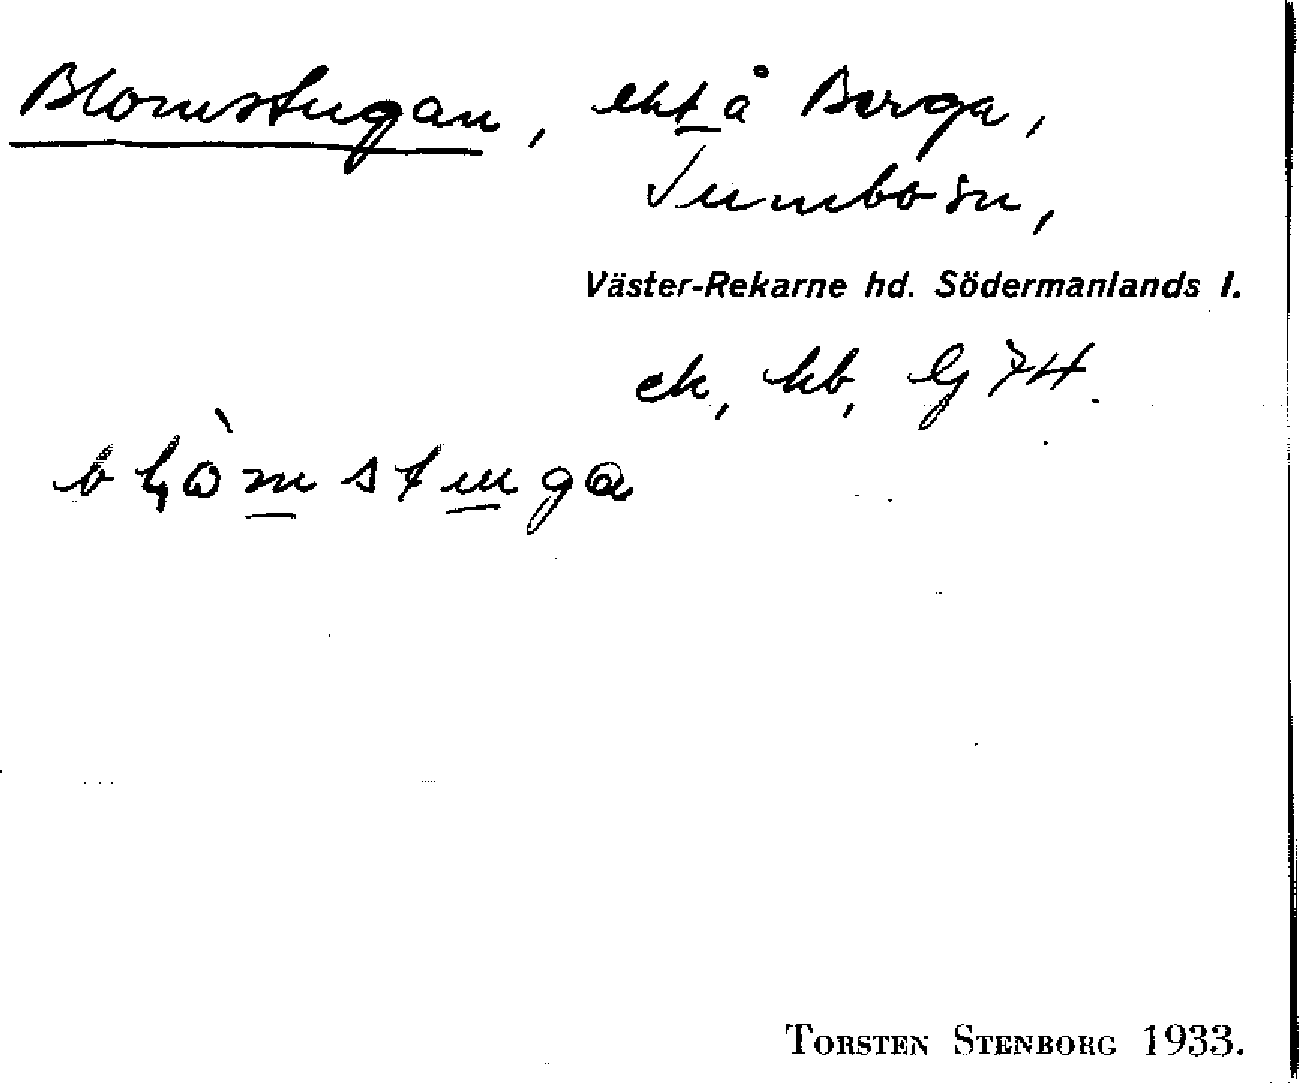 Blomstugan, ekt å Berga,
Tumbo sn,
Väster-Rekarne hd. Södermanlands l.
ek, kb, Gj 74.
blòmstuga
TORSTEN STENBORG 1933.